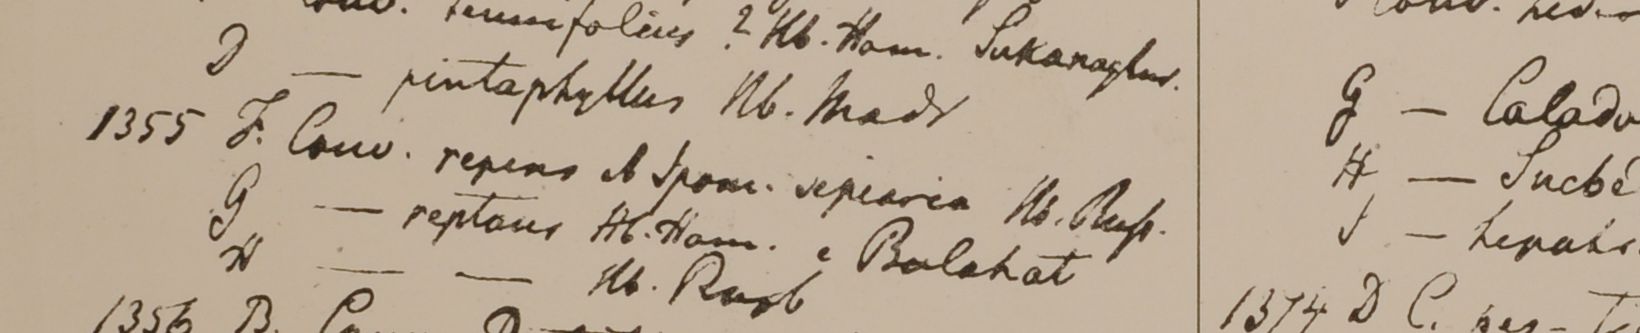 Conv. tenuifolius ? Hb. Ham. Sukanaghur.
D — pentaphyllus Hb. Madr
1355 F. Conv. repens et Ipom. sepiaria Hb. Russ.
G — reptans Hb. Ham. e Balahat
H — — Hb. Roxb
1356 B. Conv.
Conv. hed
G — Calado
H — Sucbé
I — hepatic
1374 D C. pes-